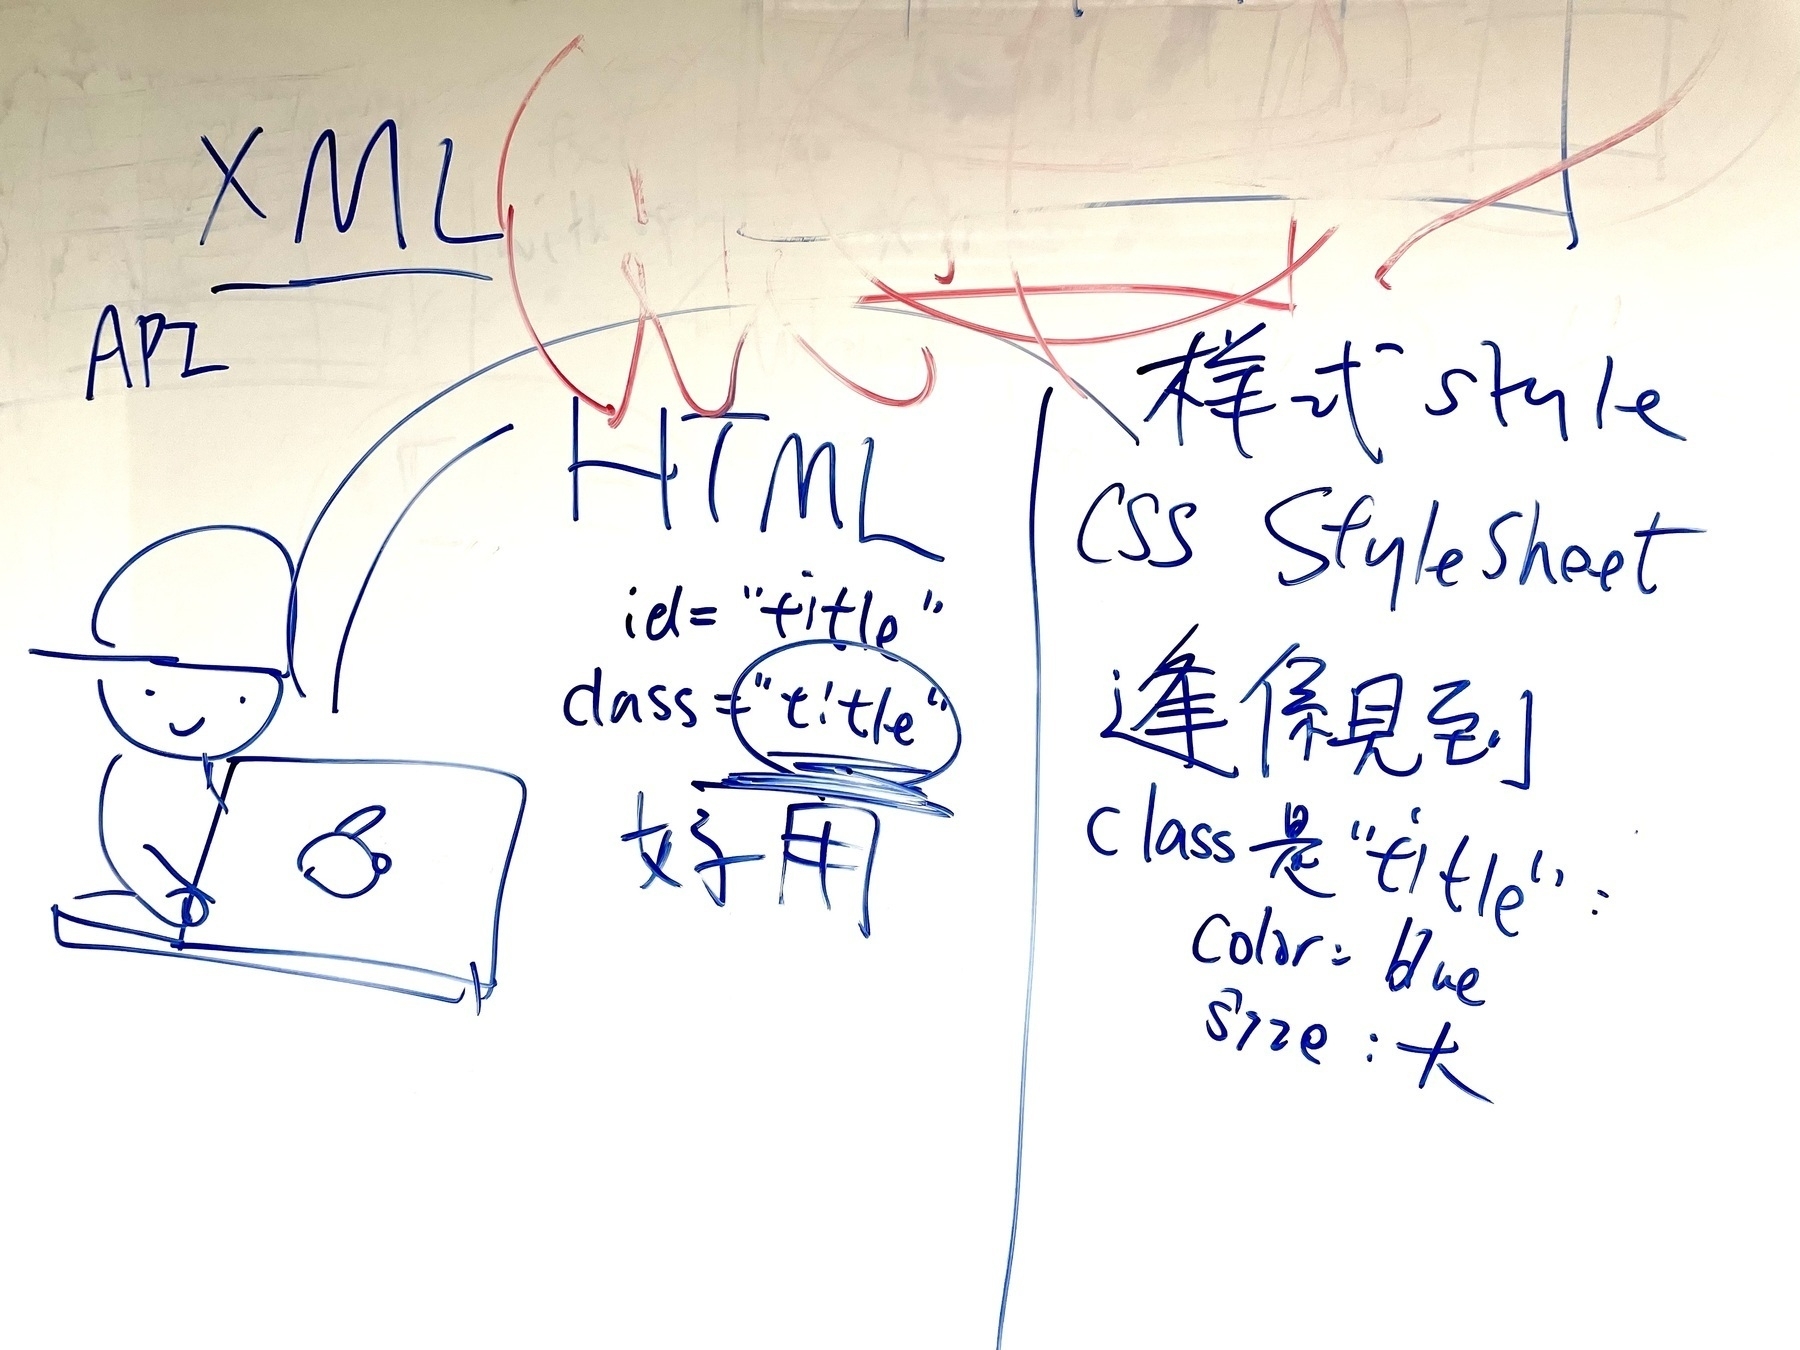 XML
API
HTML
id="title"
class="title"
好用
样式 style
CSS StyleSheet
逢係見到
class 是 "title":
color: blue
size: 大